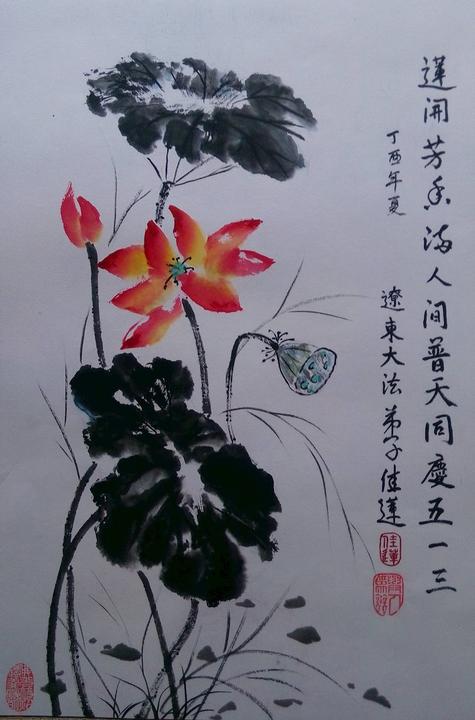 蓮开芳香滿人间普天同慶五一三
丁酉年夏
遼東大法弟子佳蓮
佳蓮